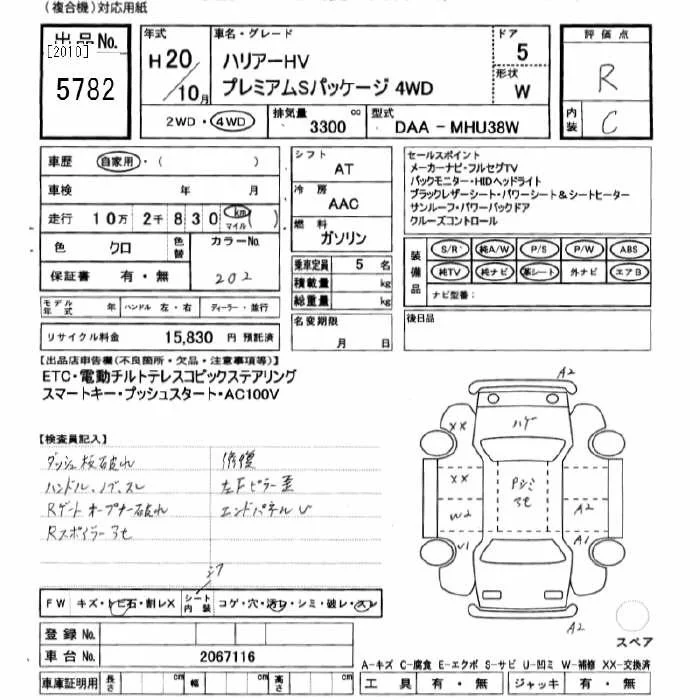 (複合機)対応用紙
出品No.
[2010]
5782
年式
H20/10月
車名・グレード
ハリアーHV
プレミアムSパッケージ 4WD
ドア
5
形状
W
2WD・4WD
排気量
3300 cc
型式
DAA - MHU38W
評価点
R
内装
C
車歴 自家用・( )
車検 年 月
走行 10万 2千 830 km マイル
色 クロ 色替
カラーNo.
202
保証書 有・無
モデル年式 年 ハンドル 左・右 ディーラー・並行
リサイクル料金 15,830 円 預託済
シフト
AT
冷房
AAC
燃料
ガソリン
乗車定員 5 名
積載量 kg
総重量 kg
名変期限
月 日
セールスポイント
メーカーナビ・フルセグTV
バックモニター・HIDヘッドライト
ブラックレザーシート・パワーシート&シートヒーター
サンルーフ・パワーバックドア
クルーズコントロール
装備品
S/R 純A/W P/S P/W ABS
純TV 純ナビ 革シート 外ナビ エアB
ナビ型番:
後日品
【出品店申告欄(不良箇所・欠品・注意事項等)】
ETC・電動チルトテレスコピックステアリング
スマートキー・プッシュスタート・AC100V
【検査員記入】
ダッシュ板破れ
ハンドル、ノブ、スレ
Rゲートオープナー破れ
Rスポイラー
修復
左Fピラー歪
エンドパネルU
シワ
FW キズ・トビ石・割レX
シート内装 コゲ・穴・汚レ・シミ・破レ・スレ
登録No.
車台No. 2067116
車庫証明用 長さ cm 幅 cm 高さ cm
A2
ハゲ
XX
XX
W2
U1
Pシミ
A2
A1
A2
スペア
A-キズ C-腐食 E-エクボ S-サビ U-凹ミ W-補修 XX-交換済
工具 有・無 ジャッキ 有・無